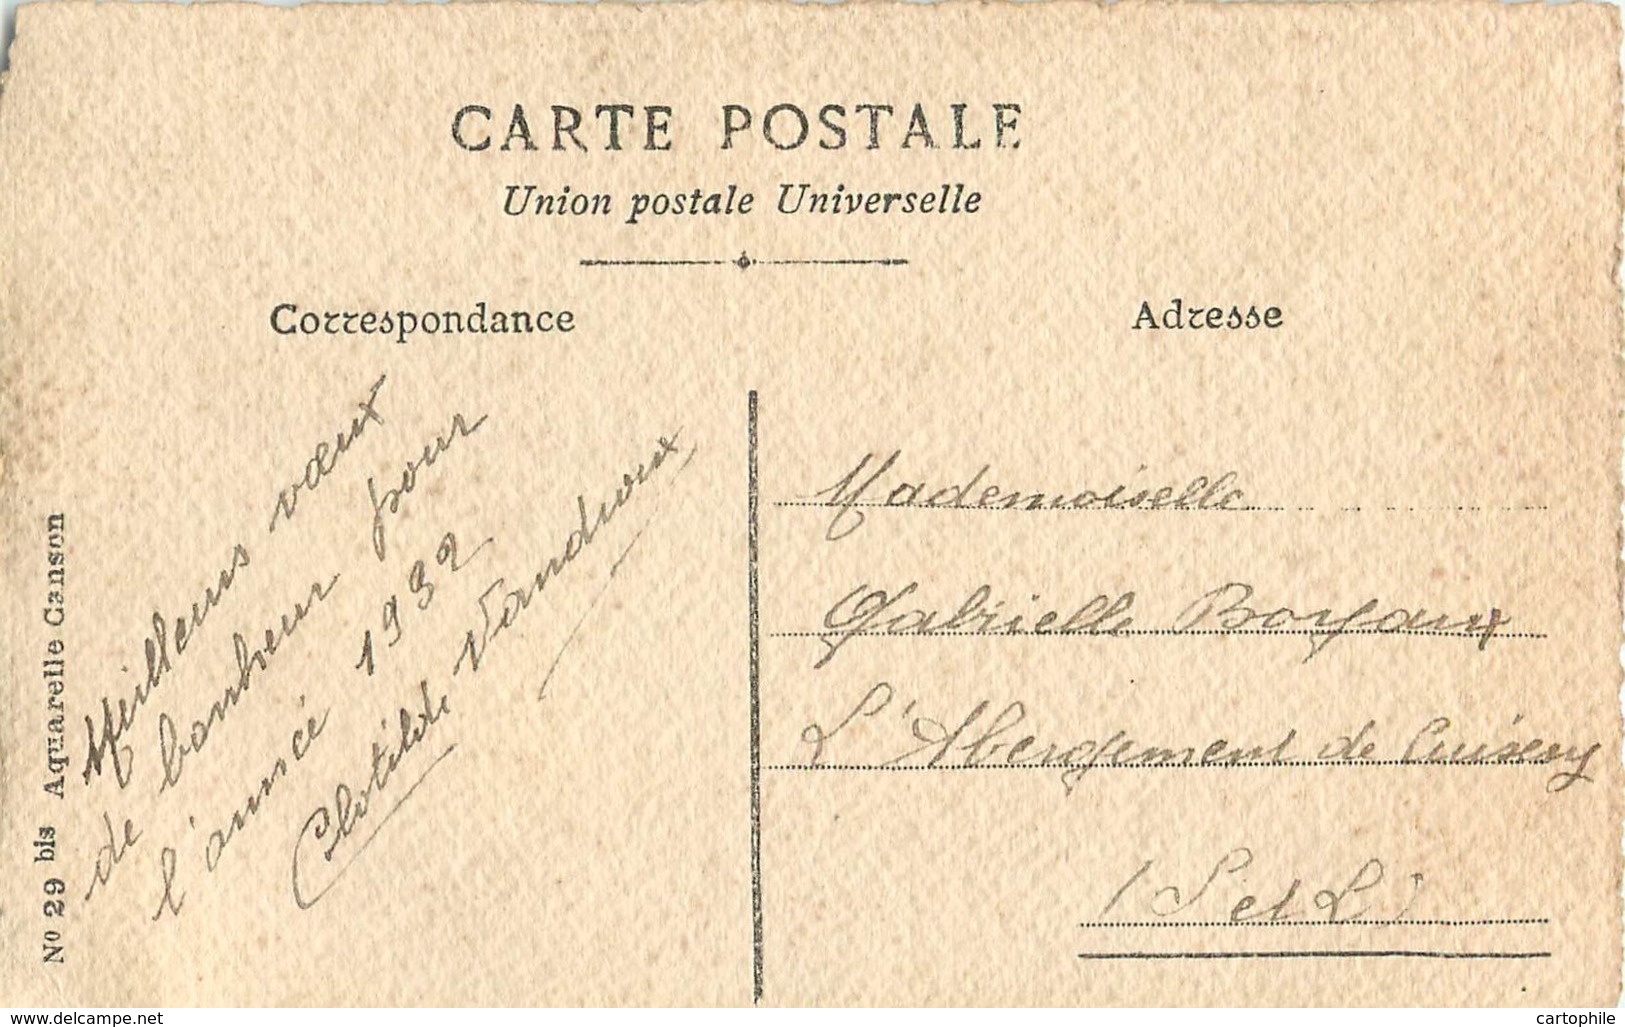 CARTE POSTALE
Union postale Universelle
Correspondance
Adresse
Meilleurs vœux
de bonheur pour
l'année 1932
Clotilde Vandroux
Mademoiselle
Gabrielle Boyaux
L'Abergement de Cuisery
(S et L)
No 29 bis Aquarelle Canson
www.delcampe.net
cartophile